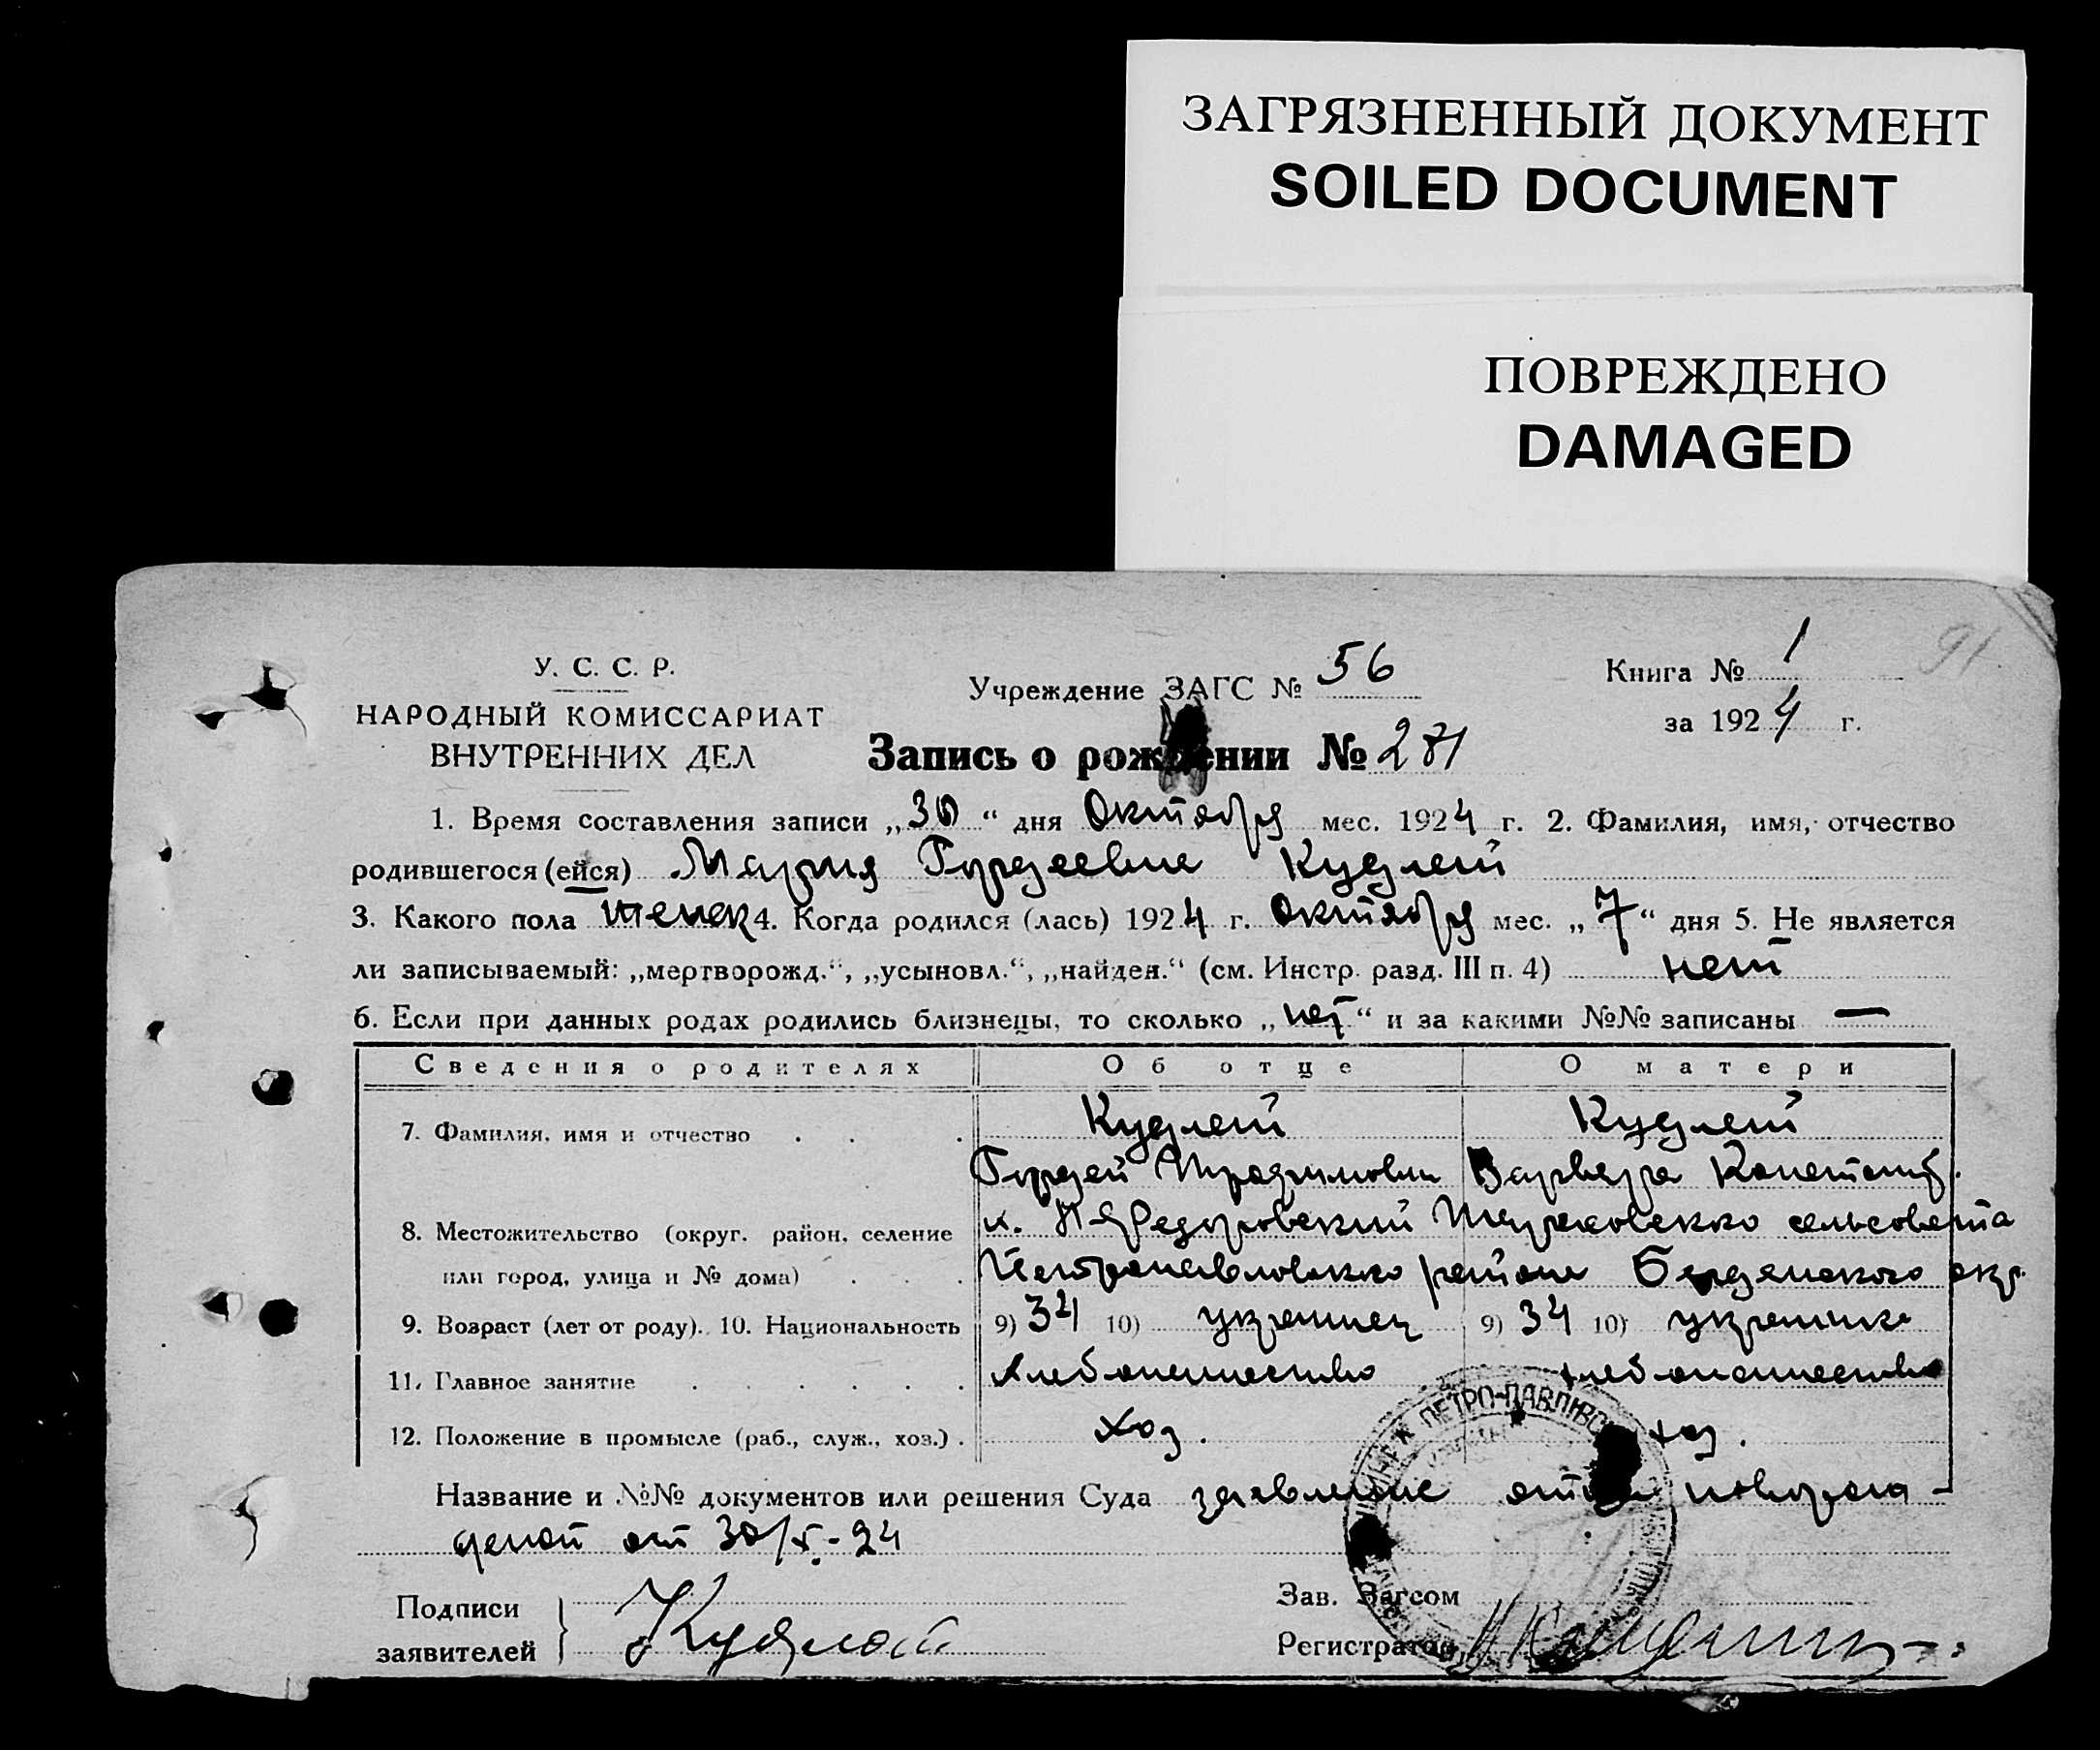 ЗАГРЯЗНЕННЫЙ ДОКУМЕНТ
SOILED DOCUMENT
ПОВРЕЖДЕНО
DAMAGED
91
У. С. С. Р.
НАРОДНЫЙ КОМИССАРИАТ
ВНУТРЕННИХ ДЕЛ
Учреждение ЗАГС № 56
Книга № 1
за 1924 г.
Запись о рождении № 281
1. Время составления записи „30“ дня Октября мес. 1924 г. 2. Фамилия, имя, отчество
родившегося (ейся) Мария Гордеевна Кудлей
3. Какого пола женск 4. Когда родился (лась) 1924 г. Октября мес. „7“ дня 5. Не является
ли записываемый: „мертворожд.“, „усыновл.“, „найден.“ (см. Инстр. разд. III п. 4) нет
6. Если при данных родах родились близнецы, то сколько „нет“ и за какими №№ записаны —
Сведения о родителях Об отце О матери
7. Фамилия, имя и отчество Кудлей Кудлей
Гордей Трофимович Варвара Константи
8. Местожительство (округ, район, селение сельсовета
или город, улица и № дома) Петропавловского района Бердянского окр.
9. Возраст (лет от роду). 10. Национальность 9) 34 10) украинец 9) 34 10) украинка
11. Главное занятие хлебопашество хлебопашество
12. Положение в промысле (раб., служ., хоз.) хоз. хоз.
ПЕТРО-ПАВЛІВСЬ
Название и №№ документов или решения Суда заявление отца новорож
денной от 30/X-24
Подписи
заявителей Кудлай
Зав. Загсом
Регистратор